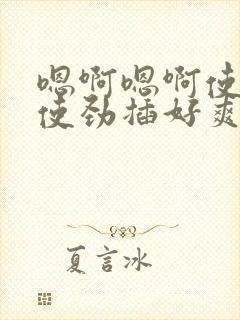 嗯啊嗯啊使
使劲插好爽
夏言冰